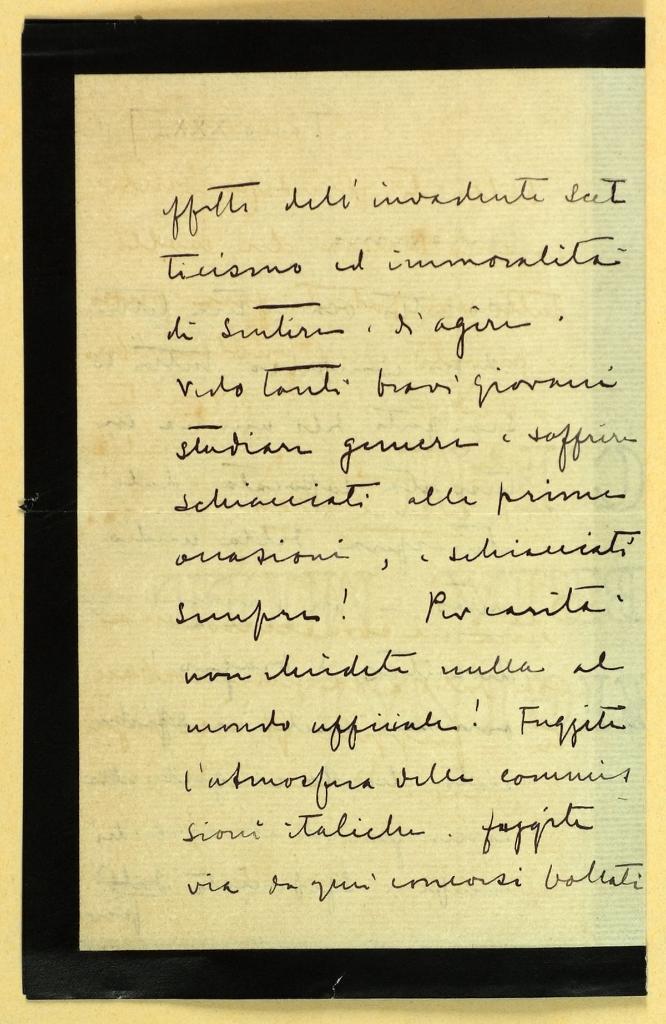 effetti dell'invadente scet
ticismo ed immoralità
di sentire e di agire.
Vedo tanti bravi giovani
studiare gemere e soffrire
schiacciati alle prime
occasioni, e schiacciati
sempre! Per carità
non chiedete nulla al
mondo ufficiale! Fuggite
l'atmosfera delle commis
sioni italiche. fuggite
via da quei concorsi bollati